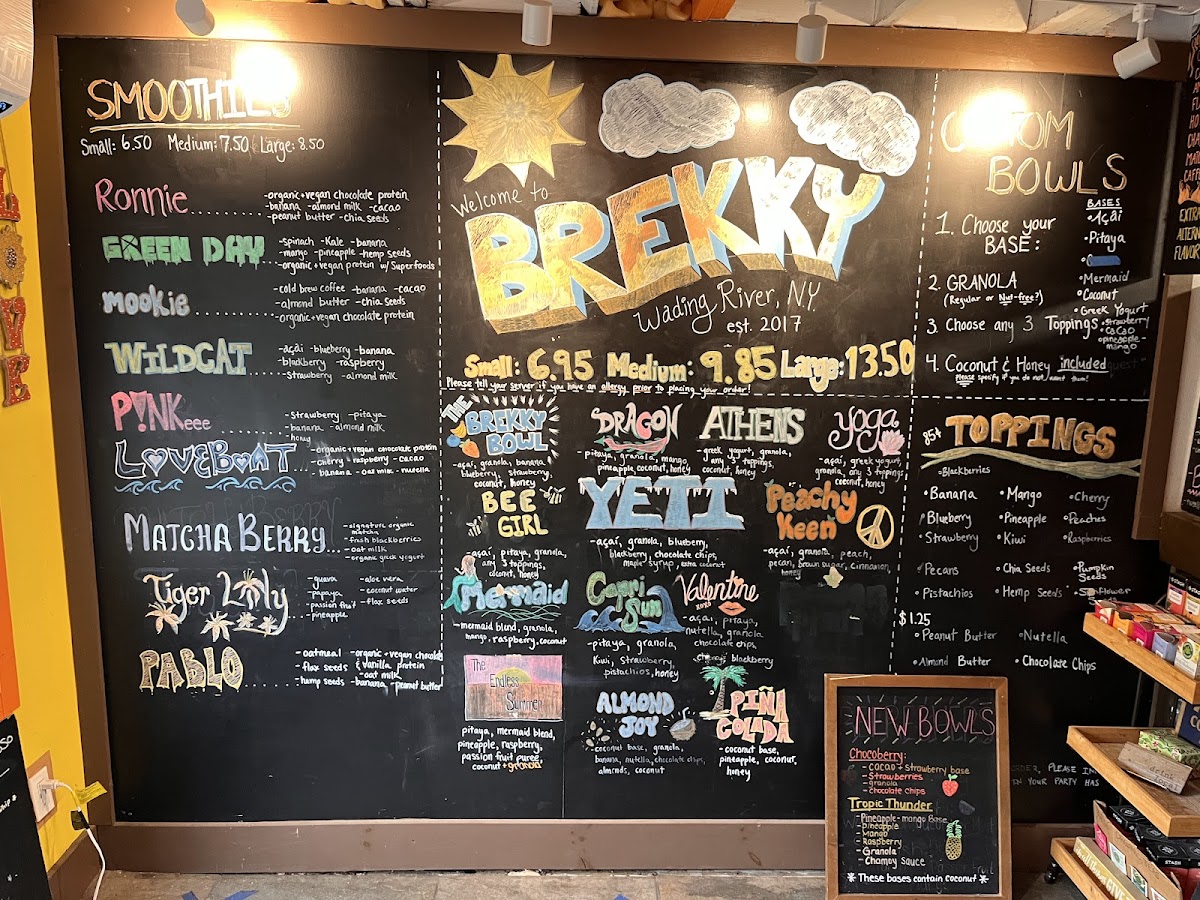 SMOOTHIES
Small: 6.50 Medium: 7.50 Large: 8.50
Ronnie
-organic+vegan chocolate protein
-banana -almond milk -cacao
-peanut butter -chia seeds
GREEN DAY
-spinach -Kale -banana
-mango -pineapple -hemp seeds
-organic+vegan protein w/ Superfoods
mookie
-cold brew coffee -banana -cacao
-almond butter -chia seeds
-organic+vegan chocolate protein
WILDCAT
-açai -blueberry -banana
-blackberry -raspberry
-Strawberry -almond milk
P!NKeee
-Strawberry -pitaya
-banana -almond milk
-honey
LOVEBOAT
-organic+vegan chocolate protein
-cherry -raspberry -cacao
-banana -oat milk -nutella
MATCHA BERRY...
-signature organic
matcha
-fresh blackberries
-oat milk
-organic greek yogurt
Tiger Lily
-guava
-papaya
-passion fruit
-pineapple
-aloe vera
-coconut water
-flax seeds
PABLO
-oatmeal
-flax seeds
-hemp seeds
-organic+vegan chocolate
& vanilla protein
-oat milk
-banana -peanut butter
Welcome to
BREKKY
Wading River, NY
est. 2017
Small: 6.95 Medium: 9.85 Large: 13.50
Please tell your server if you have an allergy prior to placing your order!
THE
BREKKY
BOWL
-açai, granola, banana
blueberry, strawberry,
coconut, honey
DRAGON
pitaya, granola, mango
pineapple coconut, honey
ATHENS
-greek yogurt, granola,
any 3 toppings,
coconut, honey
yoga
-açai, greek yogurt,
granola, any 3 toppings,
coconut, honey
BEE
GIRL
-açai, pitaya, granola,
any 3 toppings,
coconut, honey
YETI
-açai, granola, blueberry,
blackberry, chocolate chips,
maple syrup, extra coconut
Peachy
Keen
-açai, granola, peach,
pecan, brown sugar, cinnamon,
honey
Mermaid
-mermaid blend, granola,
mango, raspberry, coconut
Capri
Sun
-pitaya, granola,
Kiwi, Strawberry,
pistachios, honey
Valentine
-açai, pitaya,
nutella, granola
chocolate chips,
blackberry
The
Endless
Summer
pitaya, mermaid blend,
pineapple, raspberry,
passion fruit puree,
coconut + granola
ALMOND
JOY
coconut base, granola,
banana, nutella, chocolate chips,
almonds, coconut
PIÑA
COLADA
-coconut base,
pineapple, coconut,
honey
BOWLS
1. Choose your
BASE:
BASES
•Açai
•Pitaya
•Mermaid
•Coconut
•Greek Yogurt
•Strawberry
cacao
•pineapple-
mango
2. GRANOLA
(Regular or Nut-free?)
3. Choose any 3 Toppings
4. Coconut & Honey included
Please specify if you do not want them!
85¢ TOPPINGS
•Blackberries
•Banana •Mango •Cherry
•Blueberry •Pineapple •Peaches
•Strawberry •Kiwi •Raspberries
•Pecans •Chia Seeds •Pumpkin
Seeds
•Pistachios •Hemp Seeds •Sunflower
$1.25
•Peanut Butter •Nutella
•Almond Butter •Chocolate Chips
NEW BOWLS
Chocoberry:
-cacao + strawberry base
-Strawberries
-granola
-chocolate chips
Tropic Thunder
-Pineapple-mango Base
-pineapple
-Mango
-Raspberry
-Granola
-Chamoy Sauce
* These bases contain coconut *